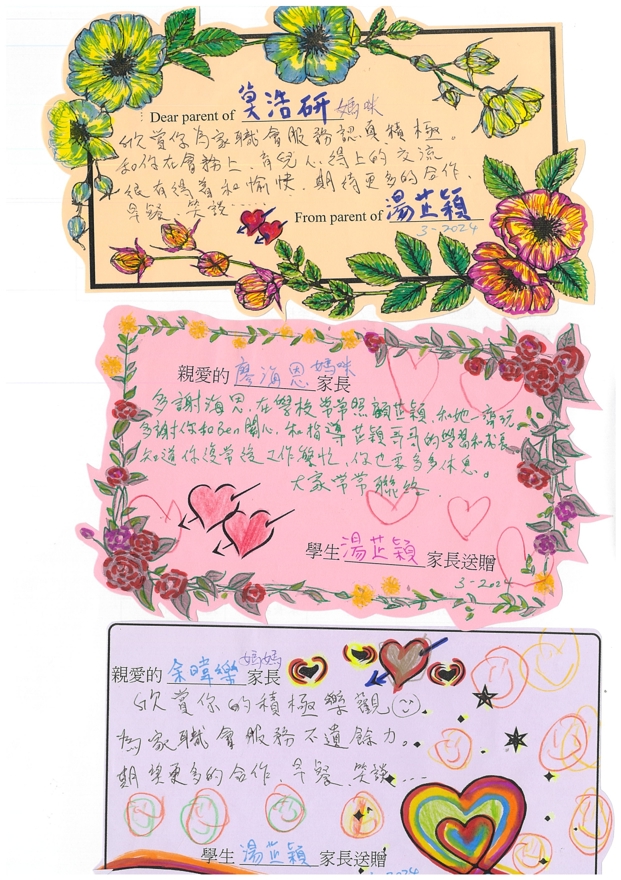 Dear parent of 莫浩研 媽咪
欣賞你為家職會服務認真積極。
和你在會務上、育兒心得上的交流
很有得着和愉快．期待更多的合作、
早餐、笑說……
From parent of 湯芷穎
3-2024
親愛的 廖海恩媽咪 家長
多謝海恩，在學校常常照顧芷穎，和她一齊玩
多謝你和Ben關心，和指導芷穎哥哥的學習和成長
知道你復常後工作繁忙，你也要多多休息。
大家常常聯絡．
學生 湯芷穎 家長送贈
3-2024
親愛的 余暐樂 媽媽 家長
欣賞你的積極樂觀
為家職會服務不遺餘力。
期望更多的合作、早餐、笑談……
學生 湯芷穎 家長送贈